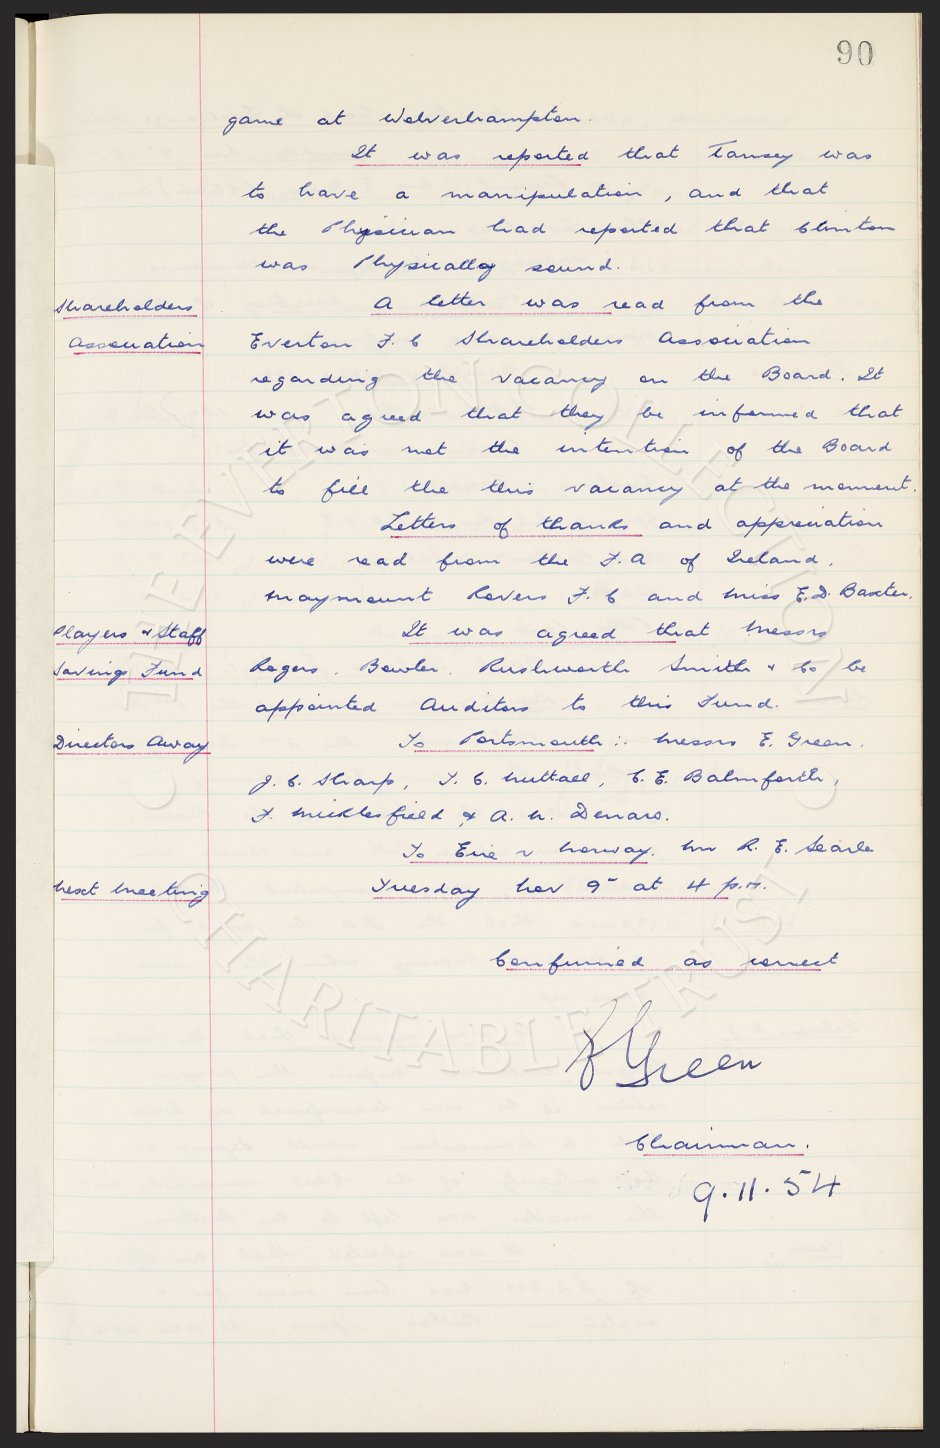 90
game at Wolverhampton.
It was reported that Tansey was
to have a manipulation, and that
the Physician had reported that Clinton
was Physically sound.
Shareholders A letter was read from the
Association Everton F. C Shareholders Association
regarding the vacancy on the Board. It
was agreed that they be informed that
it was not the intention of the Board
to fill the this vacancy at the moment.
Letters of thanks and appreciation
were read from the F. A of Ireland,
Maymount Rovers F. C and Miss E. D. Baxter.
Players & Staff It was agreed that Messrs
Saving Fund Rogers, Bowler, Rushworth Smith & Co be
appointed Auditors to this Fund.
Directors Away To Portsmouth:- Messrs E. Green,
J. C. Sharp, T. C. Nuttall, C. E. Balmforth,
F. Micklesfield & A. N. Denaro.
To Eire v Norway. Mr R. E. Searle
Next Meeting Tuesday Nov 9th at 4 p.m.
Confirmed as correct
Green
Chairman.
9.11.54
THE EVERTON COLLECTION
CHARITABLE TRUST